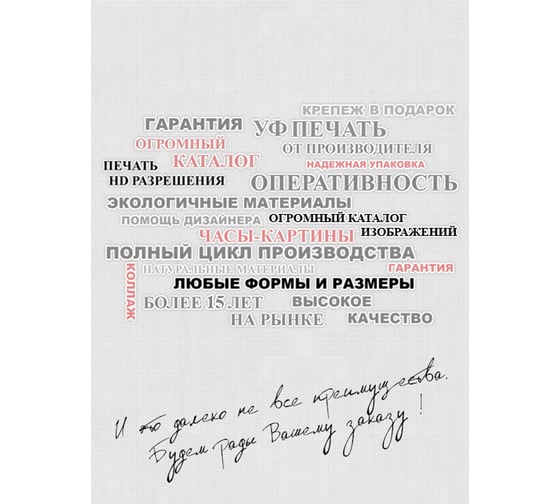 КРЕПЕЖ В ПОДАРОК
ГАРАНТИЯ
УФ ПЕЧАТЬ
ОГРОМНЫЙ
КАТАЛОГ
ОТ ПРОИЗВОДИТЕЛЯ
ПЕЧАТЬ
HD РАЗРЕШЕНИЯ
НАДЕЖНАЯ УПАКОВКА
ОПЕРАТИВНОСТЬ
ЭКОЛОГИЧНЫЕ МАТЕРИАЛЫ
ПОМОЩЬ ДИЗАЙНЕРА
ОГРОМНЫЙ КАТАЛОГ
ИЗОБРАЖЕНИЙ
ЧАСЫ-КАРТИНЫ
ПОЛНЫЙ ЦИКЛ ПРОИЗВОДСТВА
КОЛЛАЖ
НАТУРАЛЬНЫЕ МАТЕРИАЛЫ
ГАРАНТИЯ
ЛЮБЫЕ ФОРМЫ И РАЗМЕРЫ
БОЛЕЕ 15 ЛЕТ
НА РЫНКЕ
ВЫСОКОЕ
КАЧЕСТВО
И это далеко не все преимущества.
Будем рады Вашему заказу!